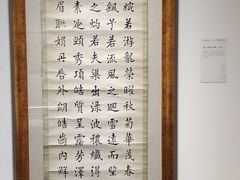 婉若游龍榮曜秋菊華茂春
颻兮若流風之迴雪遠而望
之灼若夫渠出渌波穠纖得
素延頸秀項皓質呈露芳澤
眉聯娟丹唇外朗皓齒內鮮